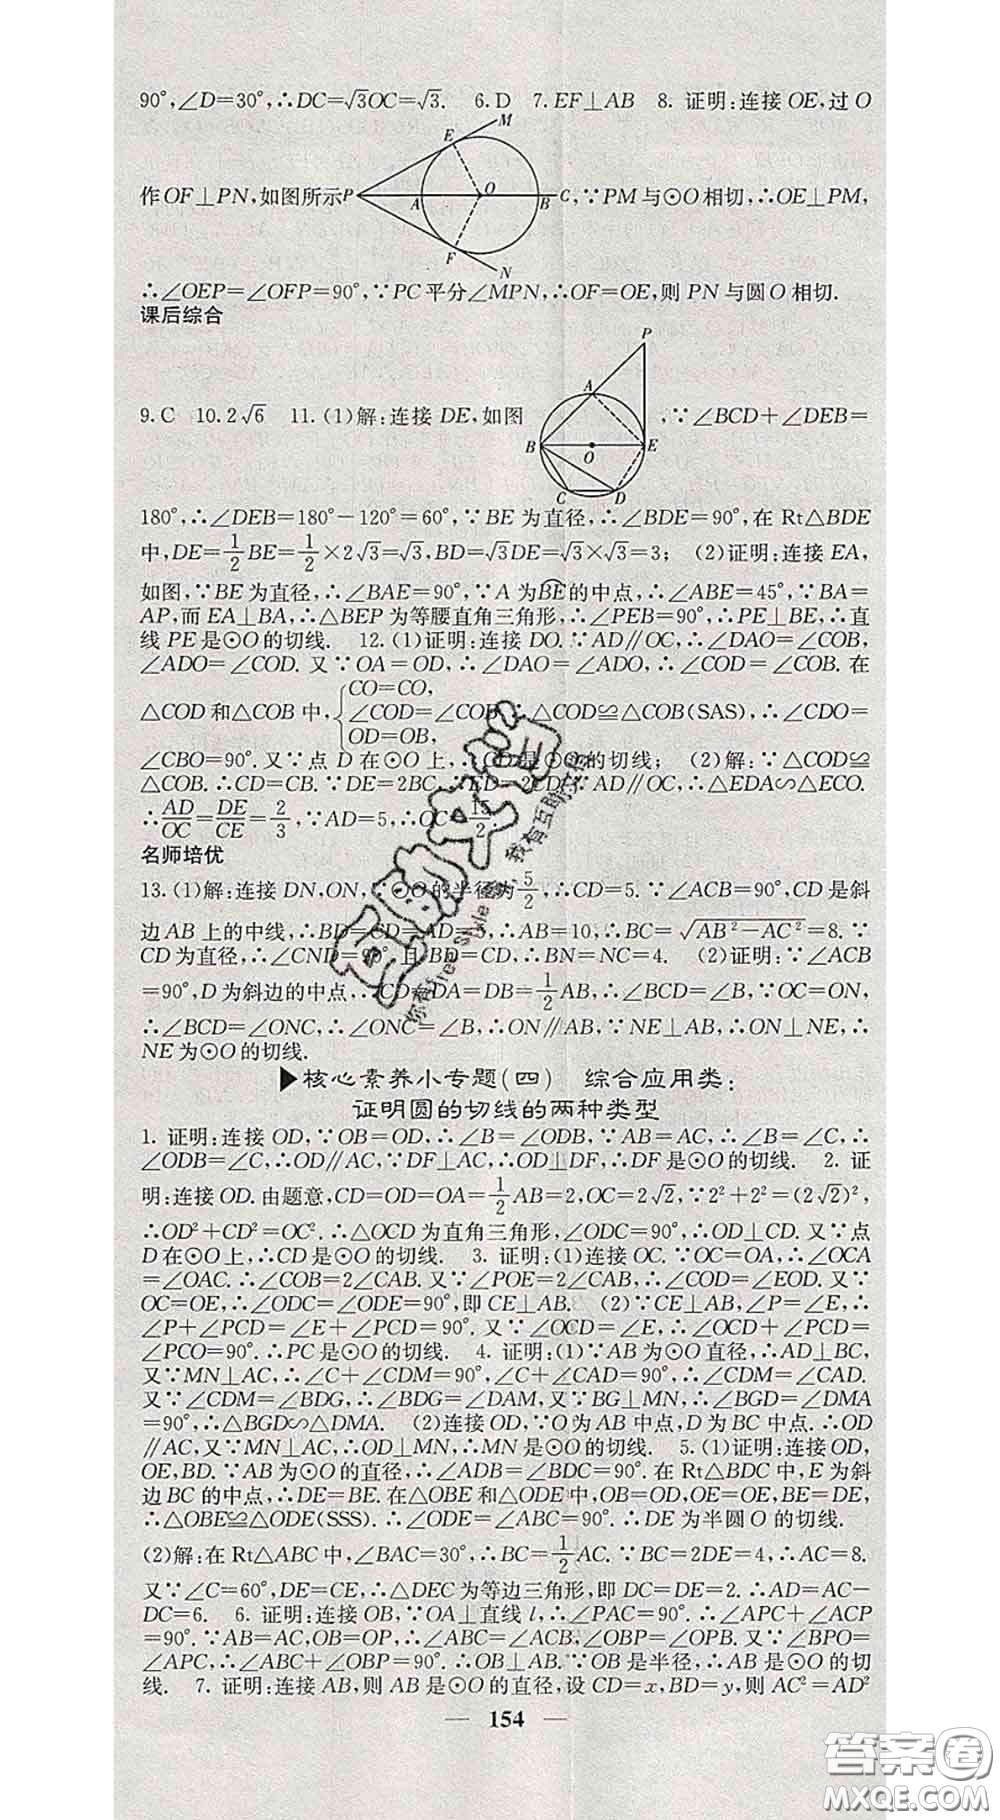 90°,∠D=30°,∴DC=√3OC=√3. 6.D 7.EF⊥AB 8. 证明:连接OE,过O
作OF⊥PN,如图所示 P A E M O B C F N ,∵PM与⊙O相切,∴OE⊥PM,
∴∠OEP=∠OFP=90°,∵PC平分∠MPN,∴OF=OE,则PN与圆O相切.
课后综合
9.C 10.2√6 11.(1)解:连接DE,如图 P A B O E C D ,∵∠BCD+∠DEB=
180°,∴∠DEB=180°-120°=60°,∵BE为直径,∴∠BDE=90°,在Rt△BDE
中,DE=1/2BE=1/2×2√3=√3,BD=√3DE=√3×√3=3; (2)证明:连接EA,
如图,∵BE为直径,∴∠BAE=90°,∵A为BE的中点,∴∠ABE=45°,∵BA=
AP,而EA⊥BA,∴△BEP为等腰直角三角形,∴∠PEB=90°,∴PE⊥BE,∴直
线PE是⊙O的切线. 12.(1)证明:连接DO.∵AD∥OC,∴∠DAO=∠COB,
∠ADO=∠COD.又∵OA=OD,∴∠DAO=∠ADO,∴∠COD=∠COB.在
△COD和△COB中,{CO=CO, ∠COD=∠COB, OD=OB, ∴△COD≌△COB(SAS),∴∠CDO=
∠CBO=90°.又∵点D在⊙O上,∴CD是⊙O的切线; (2)解:∵△COD≌
△COB.∴CD=CB.∵DE=2BC,∴ED=2CD.∵AD∥OC,∴△EDA∽△ECO.
∴AD/OC=DE/CE=2/3,∵AD=5,∴OC=15/2.
名师培优
13.(1)解:连接DN,ON,∵⊙O的半径为5/2,∴CD=5.∵∠ACB=90°,CD是斜
边AB上的中线,∴BD=CD=AD=5,∴AB=10,∴BC=√(AB²-AC²)=8.∵
CD为直径,∴∠CND=90°,且BD=CD,∴BN=NC=4. (2)证明:∵∠ACB
=90°,D为斜边的中点,∴CD=DA=DB=1/2AB,∴∠BCD=∠B,∵OC=ON,
∴∠BCD=∠ONC,∴∠ONC=∠B,∴ON∥AB,∵NE⊥AB,∴ON⊥NE,∴
NE为⊙O的切线.
▶核心素养小专题(四) 综合应用类:
证明圆的切线的两种类型
1. 证明:连接OD,∵OB=OD,∴∠B=∠ODB,∵AB=AC,∴∠B=∠C,∴
∠ODB=∠C,∴OD∥AC,∵DF⊥AC,∴OD⊥DF,∴DF是⊙O的切线. 2. 证
明:连接OD.由题意,CD=OD=OA=1/2AB=2,OC=2√2,∵2²+2²=(2√2)²,
∴OD²+CD²=OC².∴△OCD为直角三角形,∠ODC=90°,∴OD⊥CD.又∵点
D在⊙O上,∴CD是⊙O的切线. 3. 证明:(1)连接OC.∵OC=OA,∴∠OCA
=∠OAC.∴∠COB=2∠CAB.又∵∠POE=2∠CAB,∴∠COD=∠EOD.又∵
OC=OE,∴∠ODC=∠ODE=90°,即CE⊥AB. (2)∵CE⊥AB,∠P=∠E,∴
∠P+∠PCD=∠E+∠PCD=90°.又∵∠OCD=∠E,∴∠OCD+∠PCD=
∠PCO=90°.∴PC是⊙O的切线. 4. 证明:(1)∵AB为⊙O直径,∴AD⊥BC,
又∵MN⊥AC,∴∠C+∠CDM=90°,∠C+∠CAD=90°,∴∠CDM=∠CAD.
又∵∠CDM=∠BDG,∴∠BDG=∠DAM,又∵BG⊥MN,∴∠BGD=∠DMA
=90°,∴△BGD∽△DMA. (2)连接OD,∵O为AB中点,D为BC中点.∴OD
∥AC,又∵MN⊥AC,∴OD⊥MN,∴MN是⊙O的切线. 5.(1)证明:连接OD,
OE,BD.∵AB为⊙O的直径,∴∠ADB=∠BDC=90°.在Rt△BDC中,E为斜
边BC的中点,∴DE=BE.在△OBE和△ODE中,OB=OD,OE=OE,BE=DE,
∴△OBE≌△ODE(SSS).∴∠ODE=∠ABC=90°.∴DE为半圆O的切线.
(2)解:在Rt△ABC中,∠BAC=30°,∴BC=1/2AC.∵BC=2DE=4,∴AC=8.
又∵∠C=60°,DE=CE,∴△DEC为等边三角形,即DC=DE=2.∴AD=AC-
DC=6. 6. 证明:连接OB,∵OA⊥直线l,∴∠PAC=90°.∴∠APC+∠ACP
=90°.∵AB=AC,OB=OP,∴∠ABC=∠ACB,∠OBP=∠OPB.又∵∠BPO=
∠APC,∴∠ABC+∠OBP=90°.∴OB⊥AB.∵OB是半径,∴AB是⊙O的切
线. 7. 证明:连接AB,则AB是⊙O的直径,设CD=x,BD=y,则AC²=AD²
— 154 —
答案圈
MXQE.COM